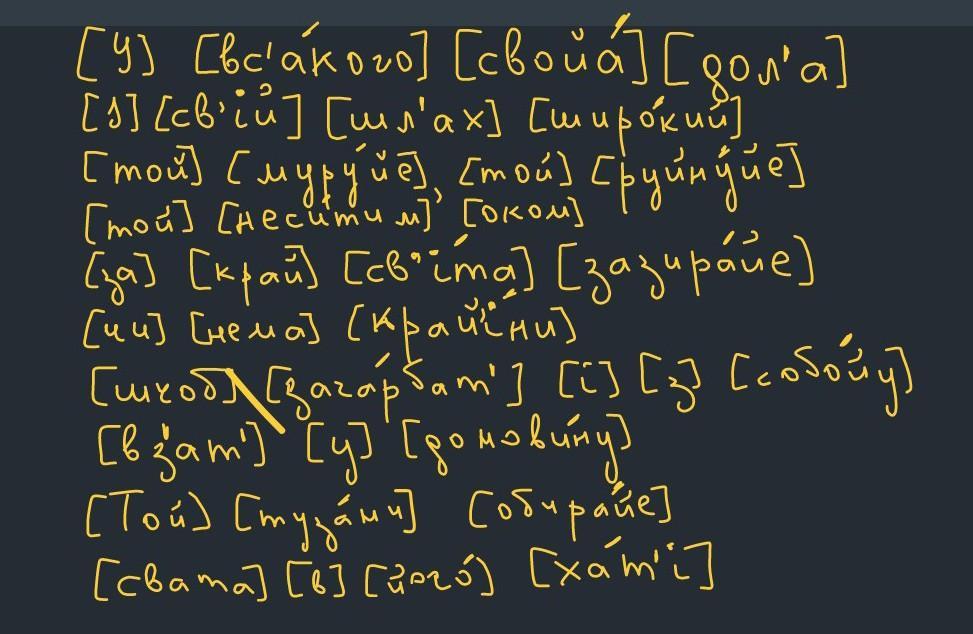 [У] [вс'а́кого] [свойа́] [дол'а]
[І] [св'ій] [шл'ах] [широ́кий]
[той] [муру́йе], [той] [руйну́йе]
[той] [неси́тим] [оком]
[за] [край] [св'і́та] [зазира́йе]
[чи] [нема] [крайі́ни]
[шчоб] [зага́рбат'] [і] [з] [собо́йу]
[вз'ат'] [у] [домови́ну]
[Той] [туза́ми] [обира́йе]
[свата] [в] [його́] [ха́т'і]